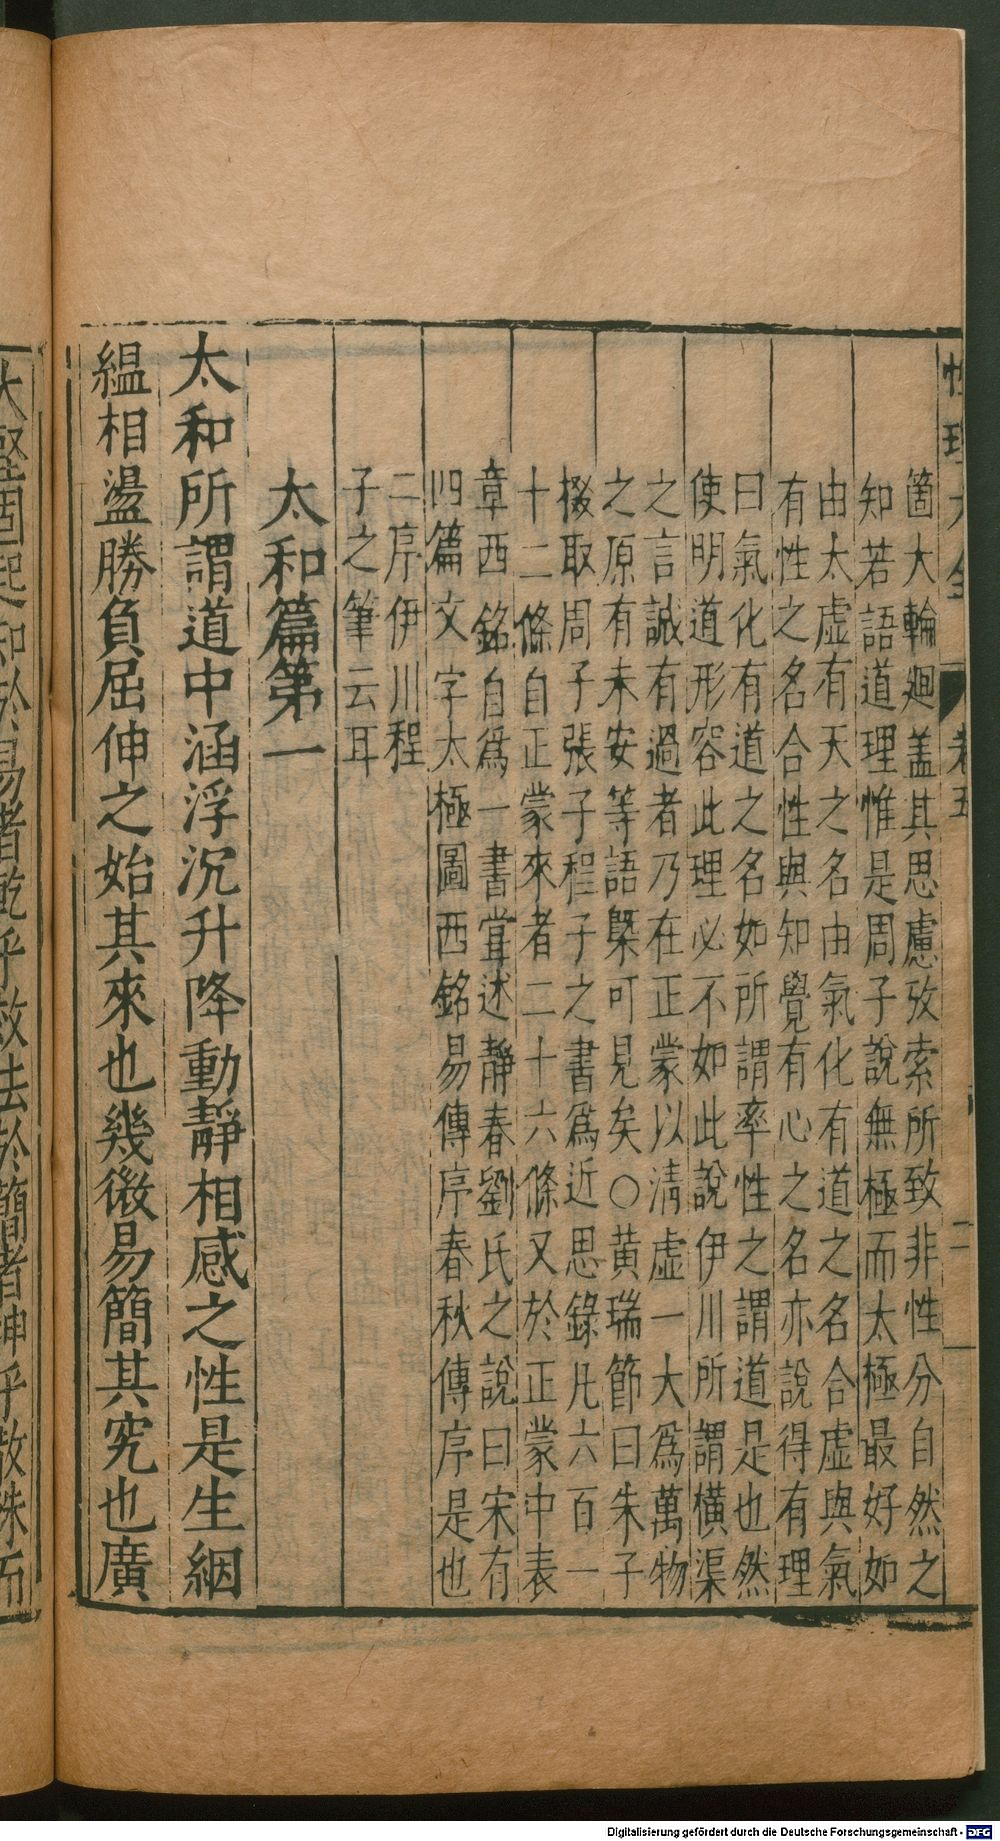 性理大全 卷五 二
箇大輪廻盖其思慮攷索所致非性分自然之
知若語道理惟是周子說無極而太極最好如
由太虛有天之名由氣化有道之名合虛與氣
有性之名合性與知覺有心之名亦說得有理
曰氣化有道之名如所謂率性之謂道是也然
使明道形容此理必不如此說伊川所謂橫渠
之言誠有過者乃在正蒙以清虛一大爲萬物
之原有未安等語槩可見矣○黃瑞節曰朱子
掇取周子張子程子之書爲近思錄凡六百一
十二條自正蒙來者二十六條又於正蒙中表
章西銘自爲一書嘗述靜春劉氏之說曰宋有
四篇文字太極圖西銘易傳序春秋傳序是也
二序伊川程
子之筆云耳
太和篇第一
太和所謂道中涵浮沉升降動靜相感之性是生絪
縕相盪勝負屈伸之始其來也幾微易簡其究也廣
大堅固起知於易者乾乎效法於簡者坤乎散殊而
Digitalisierung gefördert durch die Deutsche Forschungsgemeinschaft - DFG